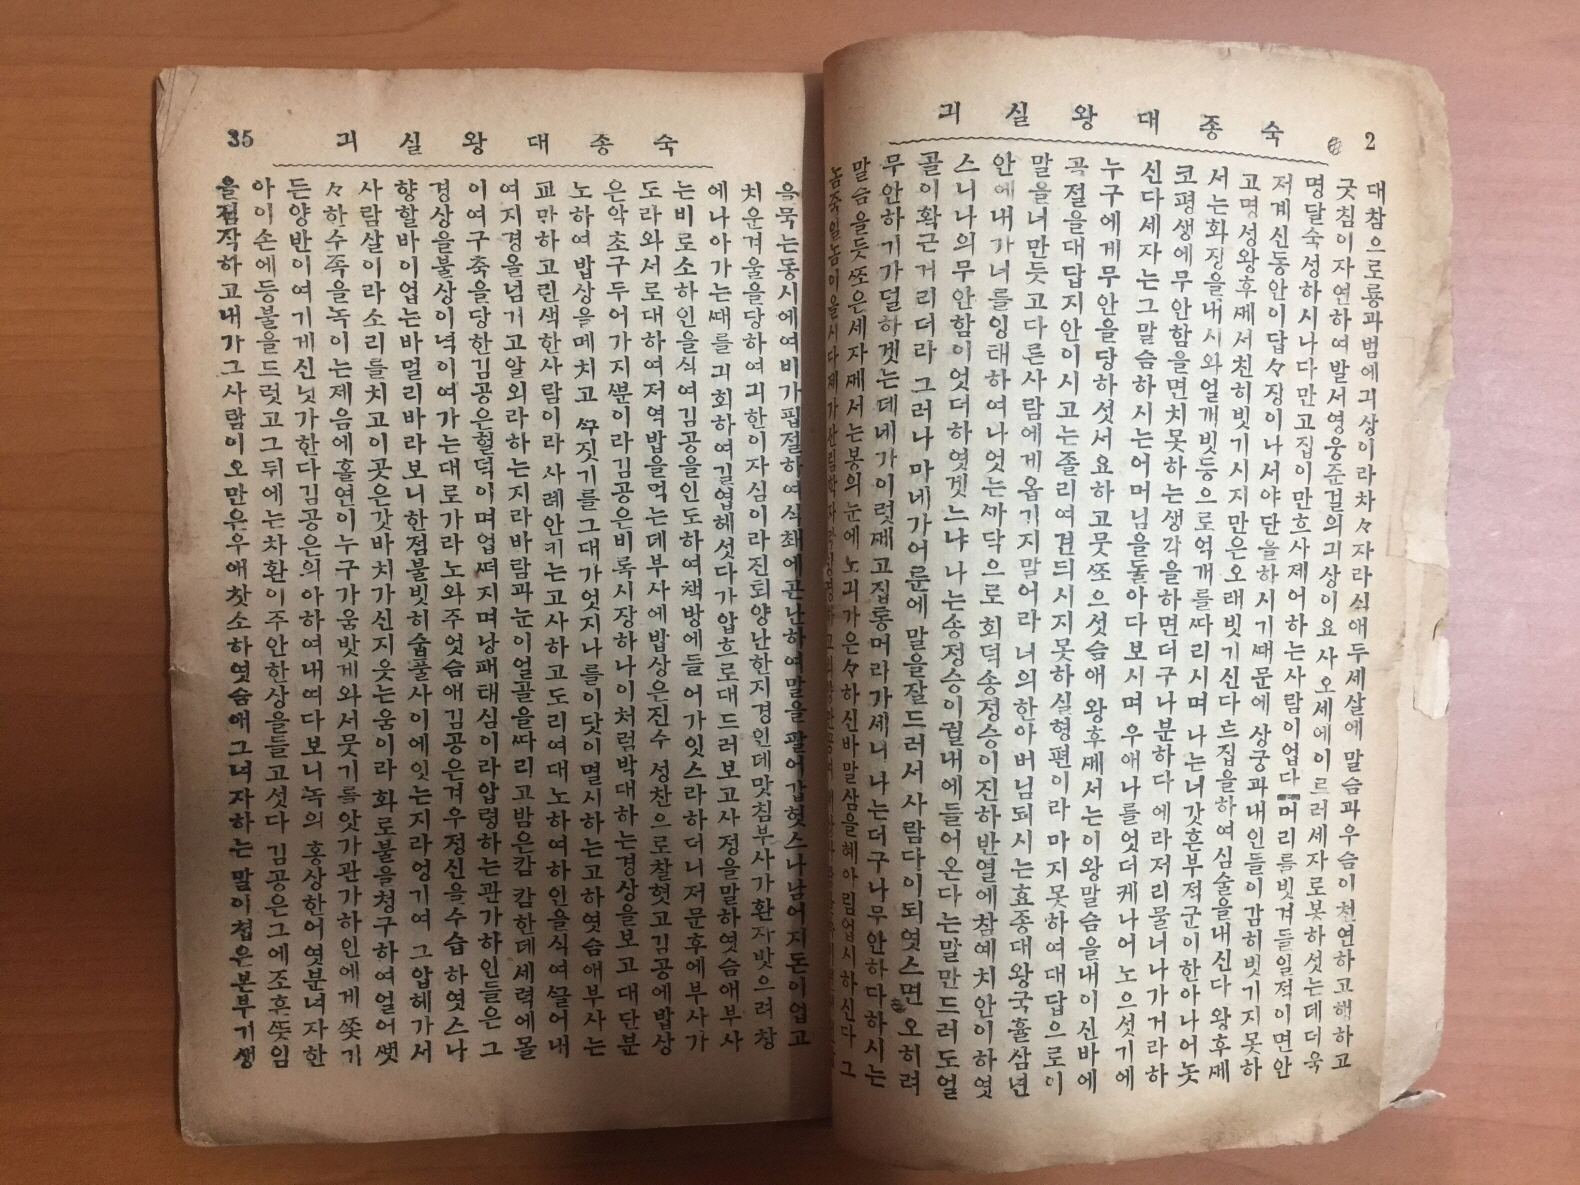 2 숙종대왕실긔
대참으로룡과범에긔상이라차々자라식애두세살에말슴과우슴이천연하고핵하고
굿침이자연하여발서영웅준걸의긔상이요사오세에이르러세자로봇하섯는데더욱
명달숙성하시나다만고집이만흐사제어하는사람이업다머리를빗겨들일적이면안
저계신동안이답々장이나서야단을하시기때문에상궁과내인들이감히빗기지못하
고명성왕후께서친히빗기시지만은오래빗기신다트집을하여심술을내신다 왕후께
서는화장을내시와얼개빗등으로억개를따리시며 나는너갓흔부적군이한아나어놋
코평생에무안함을면치못하는생각을하면더구나분하다 에라저리물너나가거라하
신다세자는그말슴하시는어머님을돌아다보시며 우애나를엇더케나어 노으섯기에
누구에게무안을당하섯서요하고뭇쪼으섯슴애 왕후께서는이왕말슴을내이신바에
곡절을대답지안이시고는졸리여견듸시지못하실형편이라 마지못하여대답으로이
말을너만듯고다른사람에게옴기지말어라 너의한아버님되시는효종대왕국휼삼년
안에내가너를잉태하여나엇는까닥으로회덕송정승이진하반열에참예치안이하엿
스니나의무안함이엇더하엿겟느냐 나는송정승이궐내에들어온다는말만드러도얼
골이확근거리더라 그러나마네가어룬에말을잘드러서사람다이되엿스면 오히려
무안하기가덜하겟는데네가이럿케고집통머라가세니나는더구나무안하다하시는
말슴을듯쪼은세자께서는봉의눈에노긔가은々하신바말삼을혜아림업시하신다 그
놈죽일놈이올시다제가산림학자라
35 숙종대왕실긔
을묵는동시에여비가핍절하여식채에곤난하여말을팔어갑헛스나남어지돈이업고
치운겨울을당하여긔한이자심이라진퇴양난한지경인데맛침부사가환자밧으려창
에나아가는때를긔회하여길엽헤섯다가압흐로대드러보고사정을말하엿슴애부사
는비로소하인을식여김공을인도하여책방에들어가잇스라하더니저문후에부사가
도라와서로대하여저역밥을먹는데부사에밥상은진수성찬으로찰혓고김공에밥상
은악초구두어가지뿐이라김공은비록시장하나이처럼박대하는경상을보고대단분
노하여밥상을메치고 꾸짓기를그대가엇지나를이닷이멸시하는고하엿슴애부사는
교만하고린색한사람이라사례안키는고사하고도리여대노하여하인을식여끌어내
여지경을넘기고알외라하는지라바람과눈이얼골을따리고밤은캄캄한데세력에몰
이여구축을당한김공은혈덕이며업떠지며낭패태심이라압령하는관가하인들은그
경상을불상이녁이여가는대로가라노와주엇슴애김공은겨우정신을수습하엿스나
향할바이업는바멀리바라보니한점불빗히숩풀사이에잇는지라엉기여그압헤가서
사람살이라소리를치고이곳은갓바치가신지읏는움이라화로불을청구하여얼어뺏
々하수족을녹이는제음에홀연이누구가움밧게와서뭇기를앗가관가하인에게쫏기
든양반이여기게신닛가한다김공은의아하여내여다보니녹의홍상한어엿분녀자한
아이손에등불을드럿고그뒤에는차환이주안한상을들고섯다김공은그에조흔뜻임
을짐작하고내가그사람이오만은우애찻소하엿슴애그녀자하는말이첩은본부기생